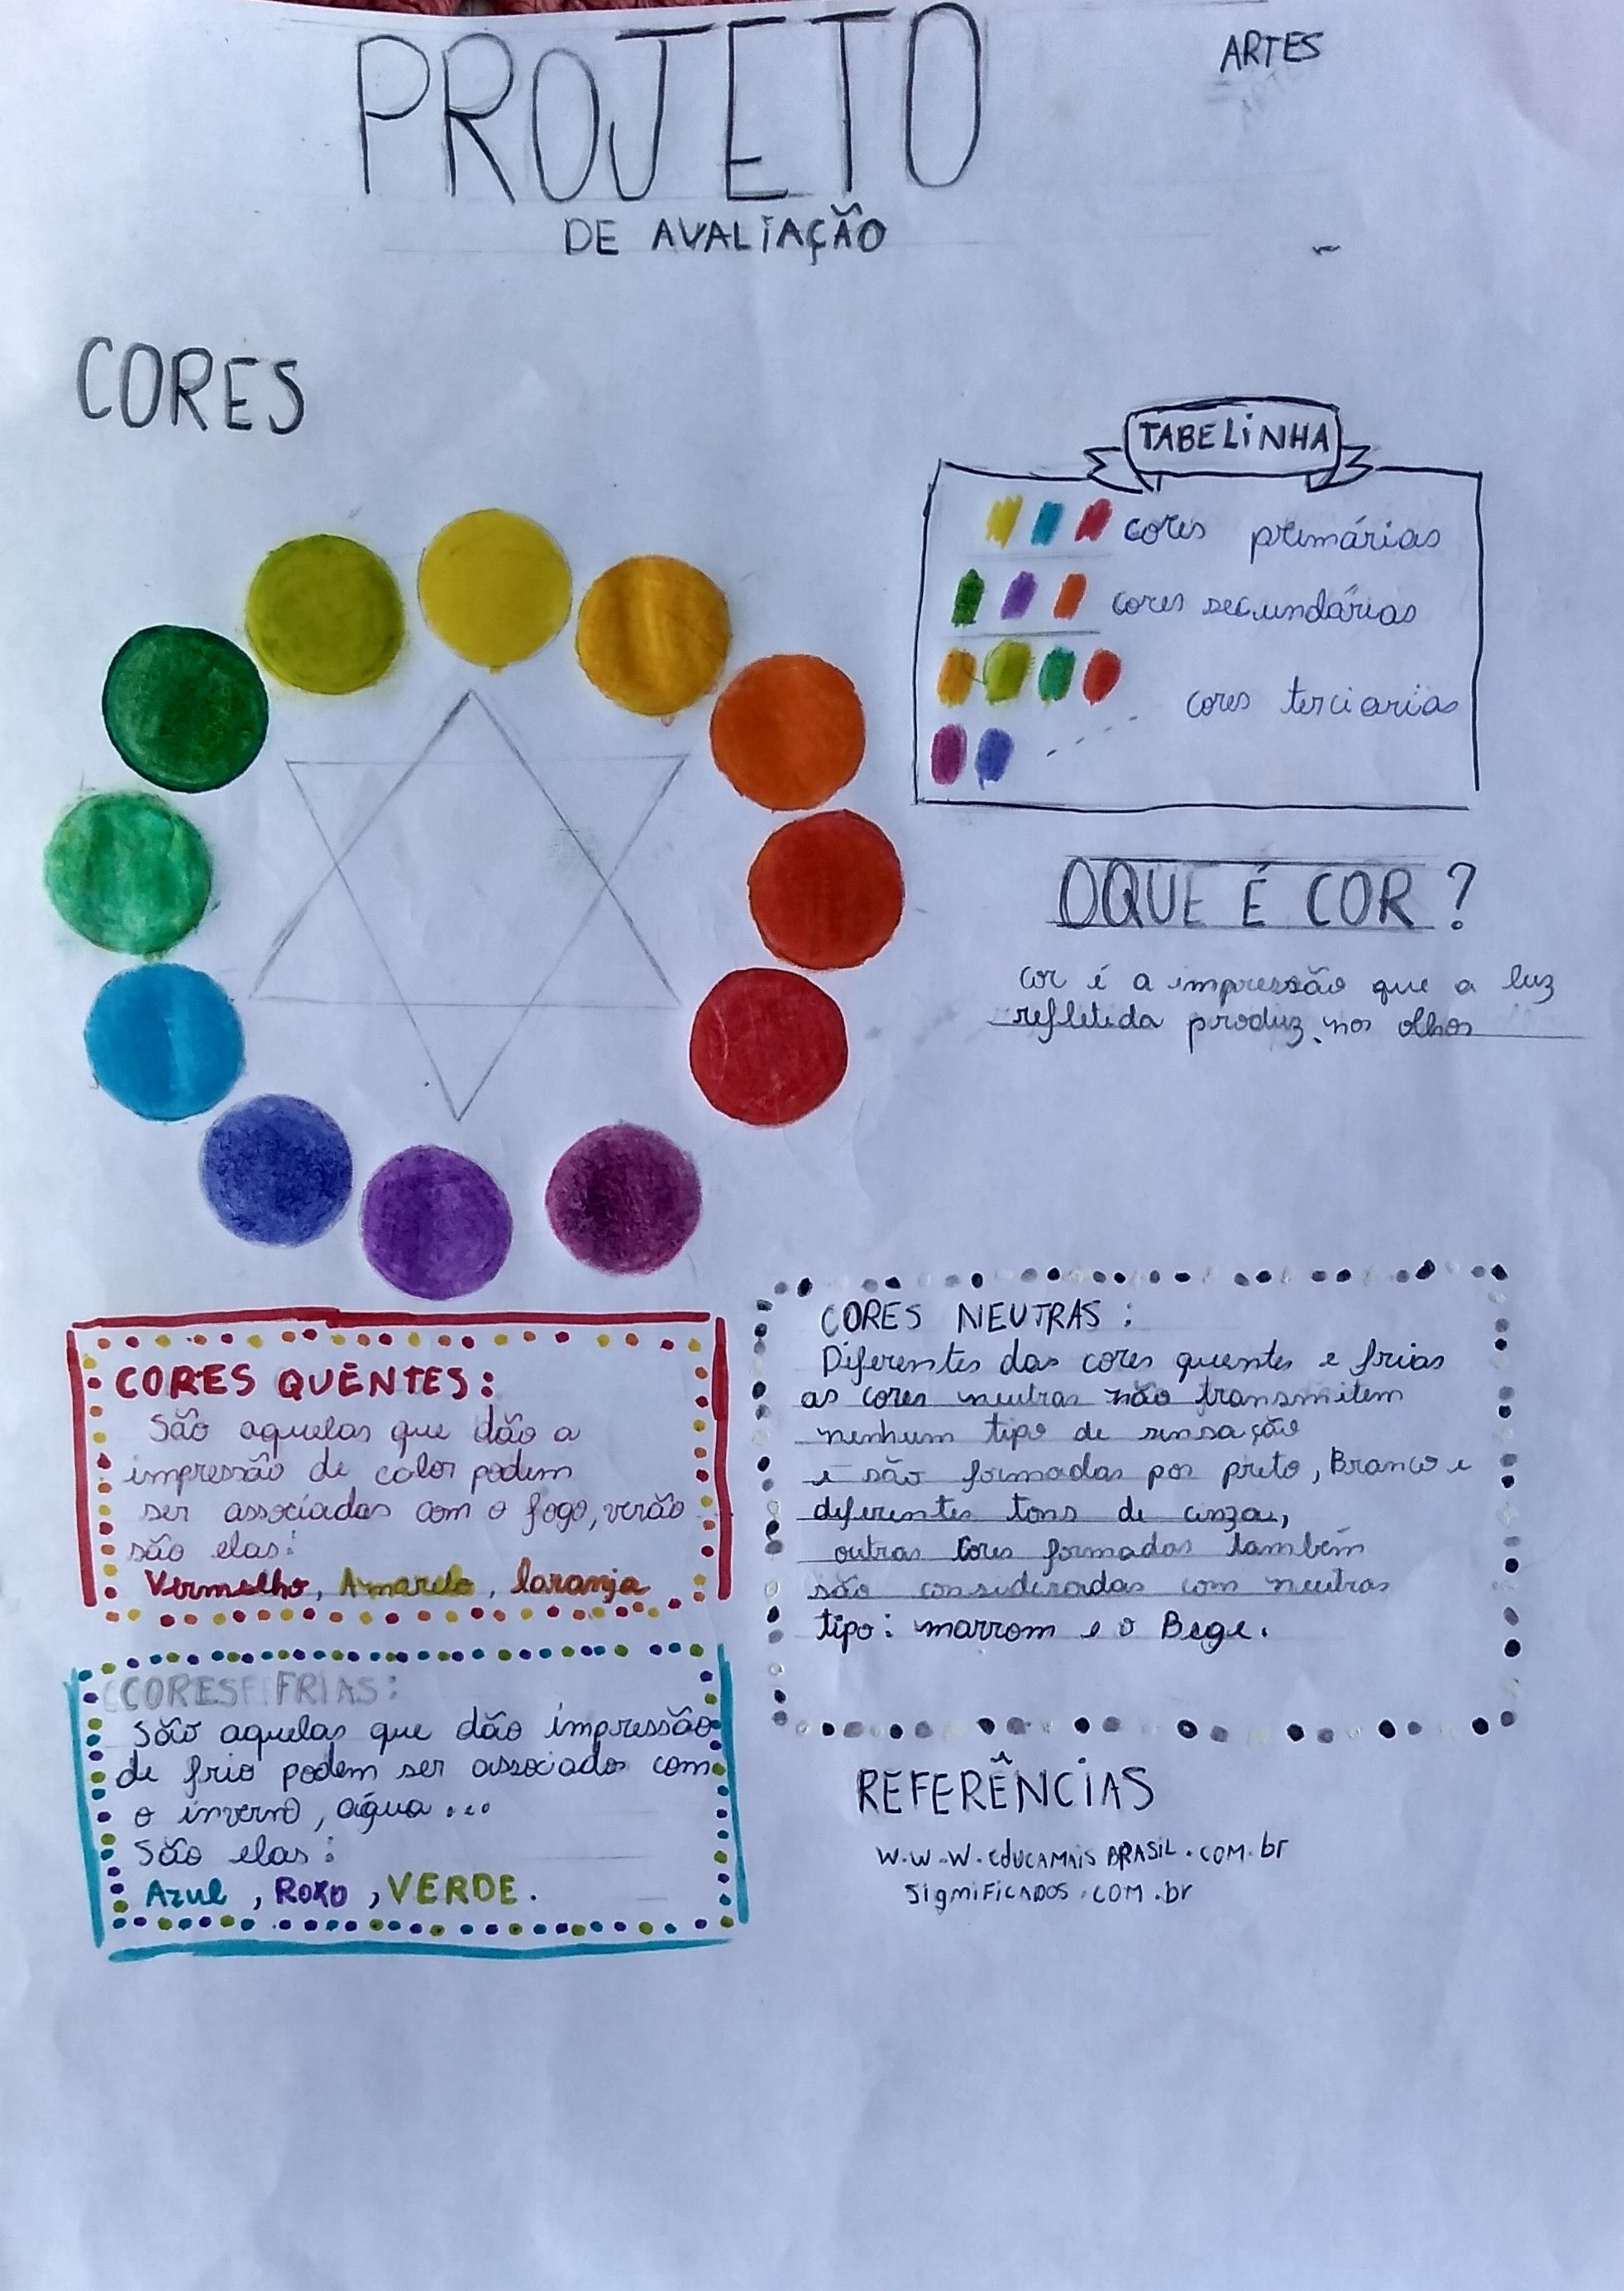 PROJETO
ARTES
DE AVALIAÇÃO
CORES
TABELINHA
cores primárias
cores secundárias
cores terciarias
OQUE É COR?
cor é a impressão que a luz
refletida produz nos olhos
CORES QUENTES:
São aquelas que dão a
impressão de calor podem
ser associadas com o fogo, verão
são elas:
Vermelho, Amarelo, laranja
CORES FRIAS:
São aquelas que dão impressão
de frio podem ser associados com
o inverno, água...
São elas:
Azul, Roxo, VERDE.
CORES NEUTRAS:
Diferentes das cores quentes e frias
as cores neutras não transmitem
nenhum tipo de sensação
e são formadas por preto, Branco e
diferentes tons de cinza,
outras cores formadas também
são consideradas com neutras
tipo: marrom e o Bege.
REFERÊNCIAS
W.W.W.EDUCAMAIS BRASIL.COM.br
SigniFICADOS.COM.br